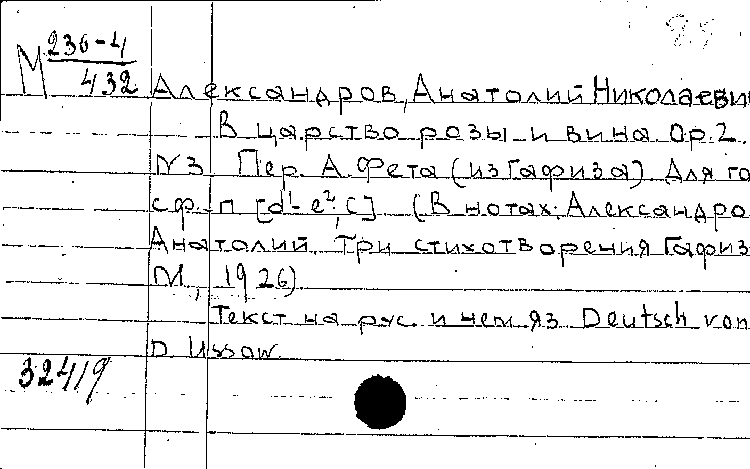 М 236-4
432
Александров, Анатолий Николаеви
В царство розы и вина. Ор.2.
N3 Пер. А. Фета (из Гафиза). Для го
с ф.-п [d¹-e²; C]. (В нотах: Александро
Анатолий. Три стихотворения Гафиз
М., 1926)
Текст на рус. и нем яз Deutsch von
D. Ussow.
324/9